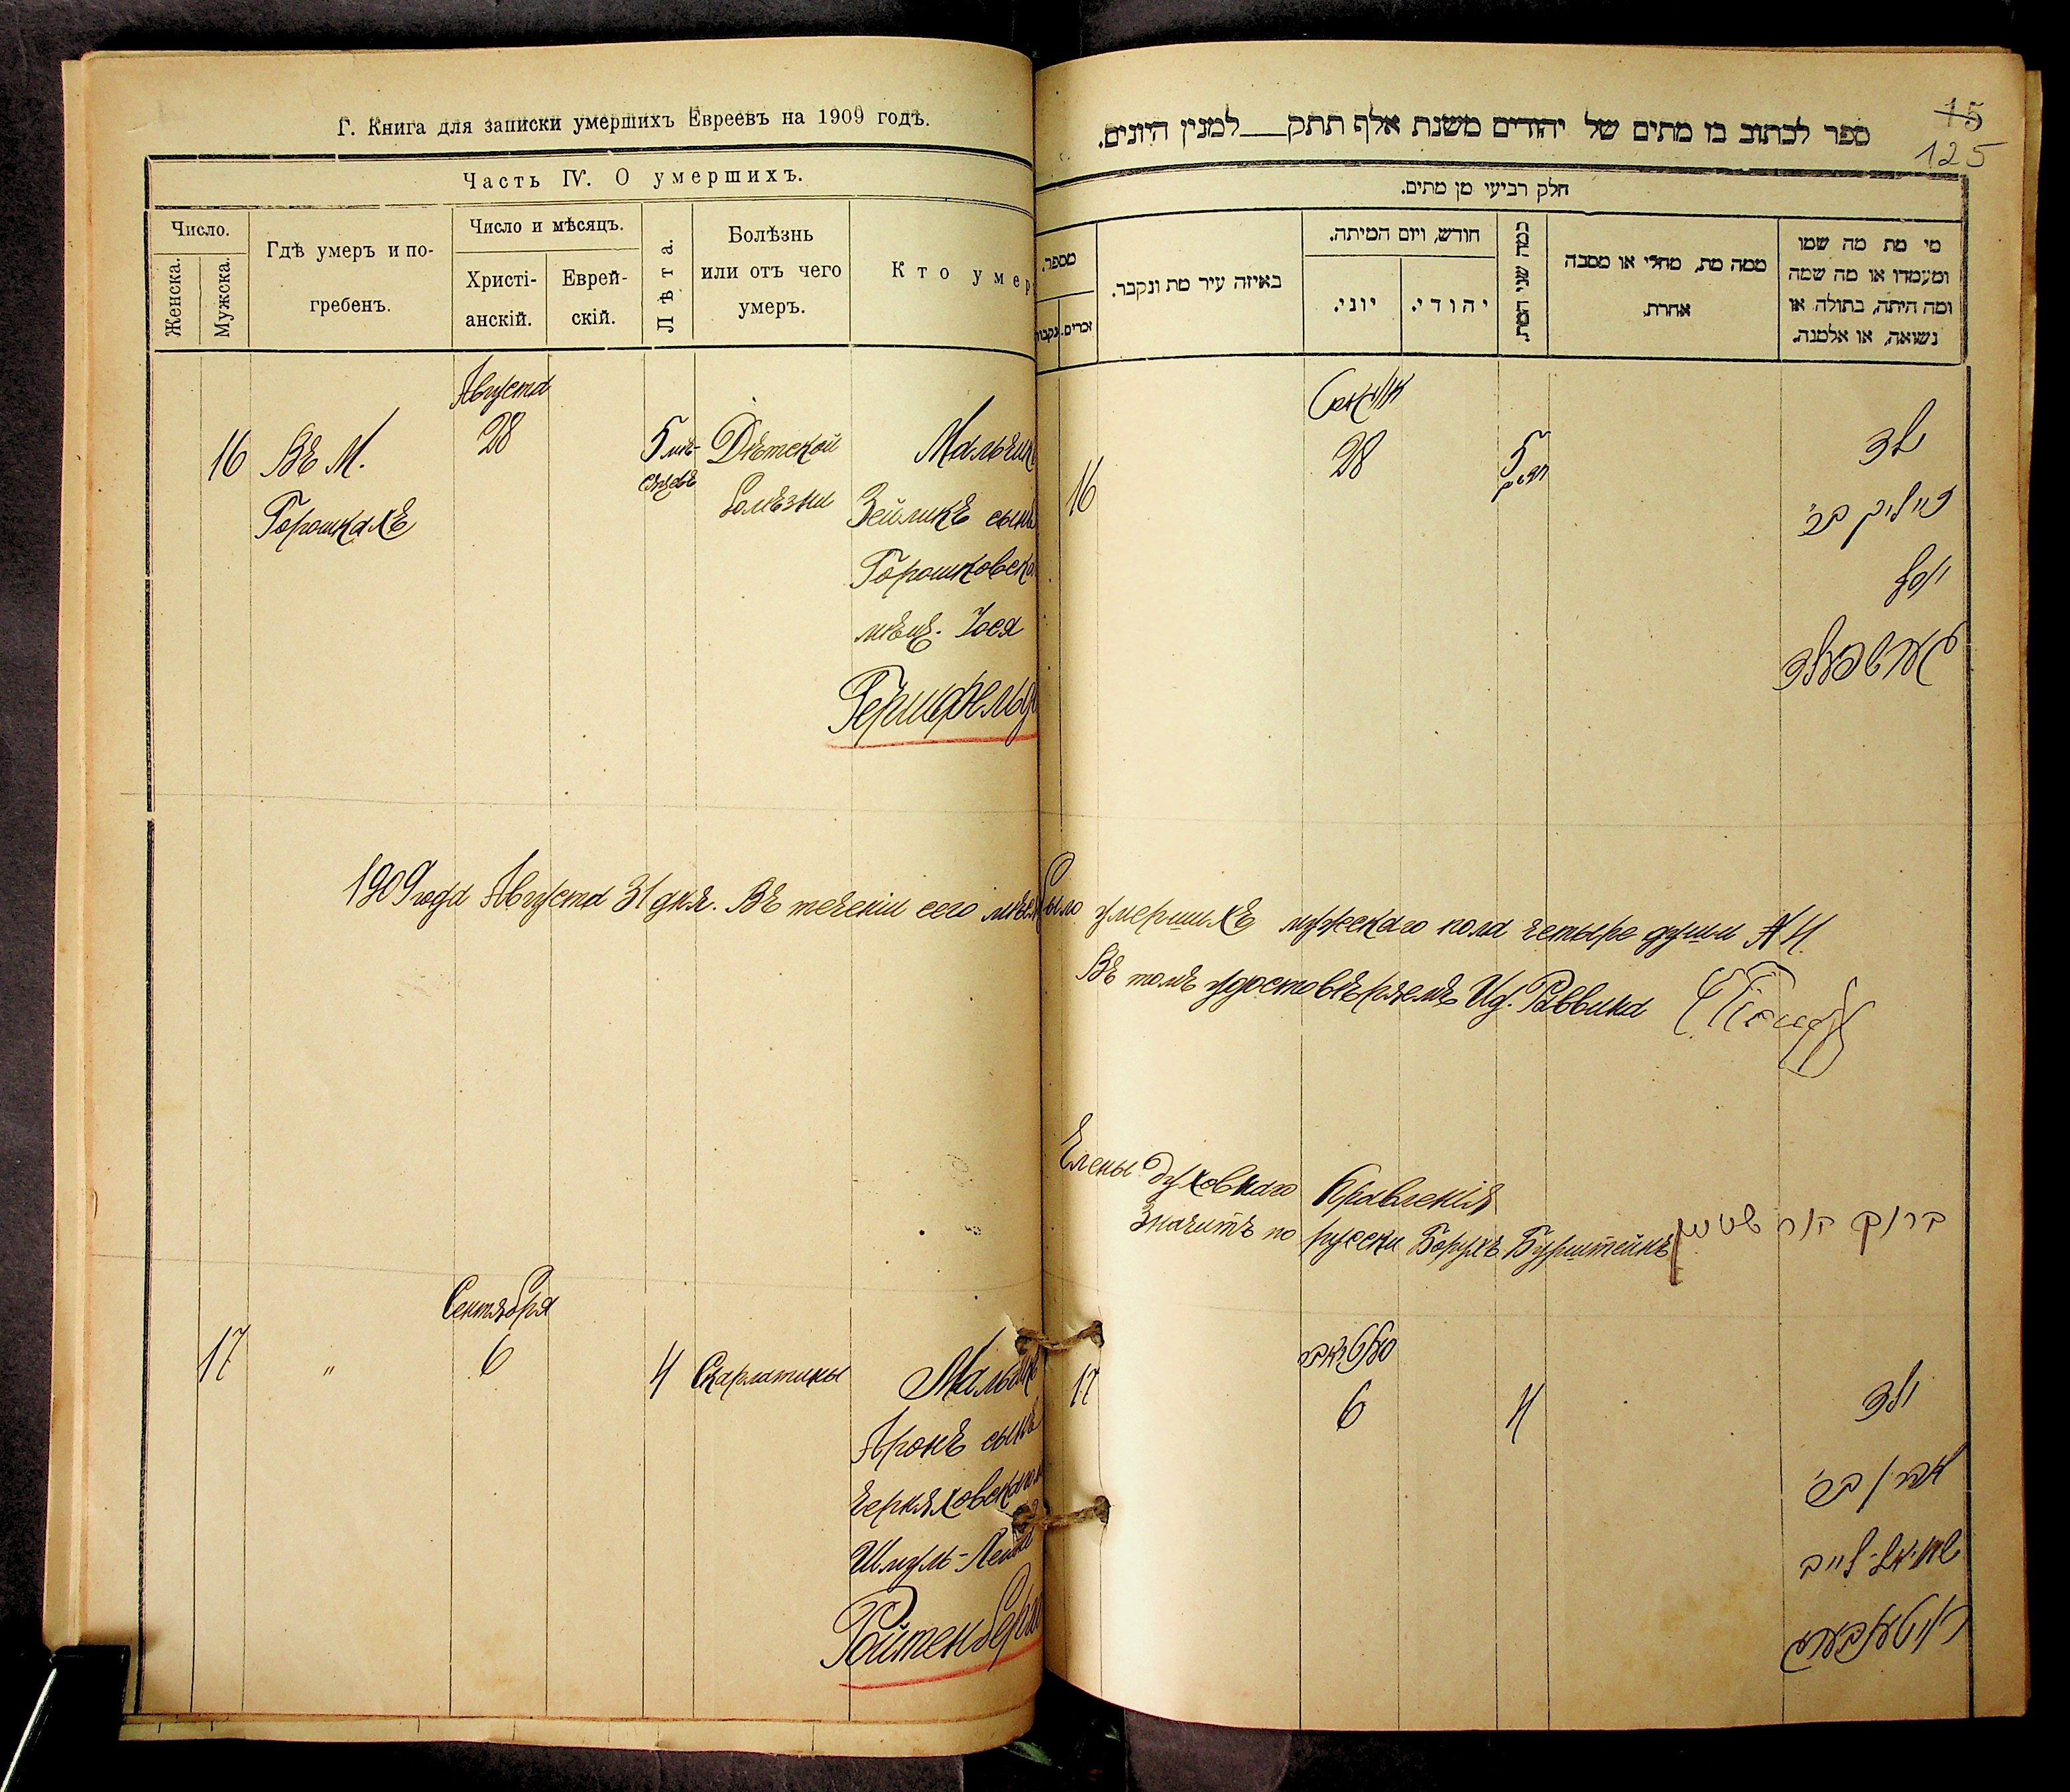 Г. Книга для записки умершихъ Евреевъ на 1909 годъ.
Часть IV. О умершихъ.
Число.
Женска.
Мужска.
Гдѣ умеръ и по-
гребенъ.
Число и мѣсяцъ.
Христі-
анскій.
Еврей-
скій.
Лѣта.
Болѣзнь
или отъ чего
умеръ.
Кто умер
Августа
16 Въ М. 28 5 мѣ- Дѣтской Мальчикъ
сяцевъ
Горошкахъ болѣзни Зейликъ сынъ
Горошковска
мѣщ. Іося
Гершфельд
1909 года Августа 31 дня. Въ теченіи сего мѣся
Сентября
17 " 6 4 Скарлатины Мальчикъ
Аронъ сынъ
Черняховскаго
Шмуль-Лейба
Ройтенберга
ספר לכתוב בו מתים של יהודים משנת אלף תתק למנין היונים.
15
125
חלק רביעי מן מתים.
מספר.
זכרים.
נקבות
באיזה עיר מת ונקבר.
חודש, ויום המיתה.
יוני.
יהודי.
כמה שני המת.
ממה מת, מחלי או מסבה
אחרת.
מי מת מה שמו
ומעמדו או מה שמה
ומה היתה, בתולה או
נשואה, או אלמנה.
אויגוסט
16 28 5 ילד
חדשים
זייליק בר'
יוסף
גערשפעלד
было умершихъ мужескаго пола четыре души № 4.
Въ томъ удостовѣряемъ Ид. Раввина
Члены Духовнаго Правленія
ברוך בורשטיין
Значитъ по русски Борухъ Бурштейнъ
סעפטיאבר
17 6 4 ילד
אהרן בר'
שמואל-לייב
רויטענבערג